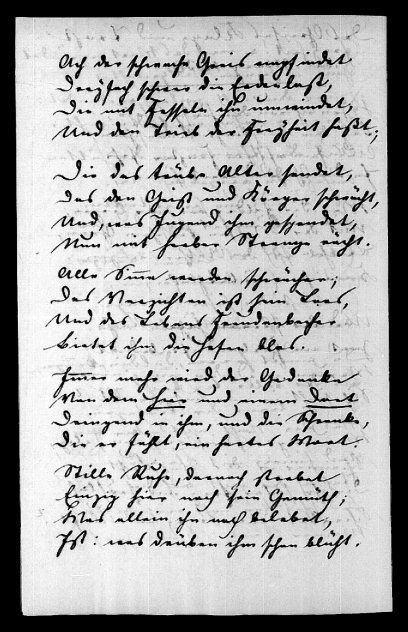 Ach der schwache Greis empfindet
Dreyfach schwer die Erdenlast,
Die mit Fesseln ihn umwindet,
Und den Trieb der Freyheit haßt;
Die das trübe Alter sendet,
Das den Geist und Körper schwächt,
Und, was Jugend ihm gespendet,
Nun mit herber Strenge rächt.
Alle Sinne werden schwächer;
Das Verzichten ist sein Loos,
Und des Lebens Freudenbecher
Bietet ihm die Hefen blos.
Immer mehr wird der Gedanke
Von dem hier und einem dort
Dringend in ihm, und die Schranke,
Die er fühlt, ein hartes Wort.
Stille Ruhe, darnach strebet
Einzig hier noch sein Gemüth;
Was allein ihn noch belebet,
Ist: was drüben ihm schon blüht.